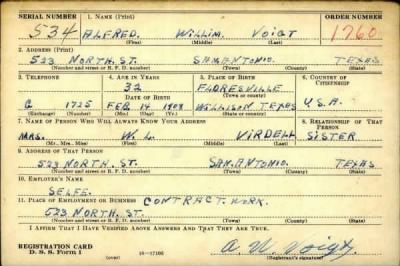 SERIAL NUMBER 1. NAME (Print) ORDER NUMBER
534 ALFRED. WILLIM. VOIGT 1760
(First) (Middle) (Last)
2. ADDRESS (Print)
523 NORTH. ST. SAN. ANTONIO. TEXAS
(Number and street or R. F. D. number) (Town) (County) (State)
3. TELEPHONE 4. AGE IN YEARS 5. PLACE OF BIRTH 6. COUNTRY OF CITIZENSHIP
32 FLORESVILLE
DATE OF BIRTH (Town or county)
G 1725 FEB 14 1908 TEXAS U.S.A.
(Exchange) (Number) (Mo.) (Day) (Yr.) (State or country)
7. NAME OF PERSON WHO WILL ALWAYS KNOW YOUR ADDRESS 8. RELATIONSHIP OF THAT PERSON
MRS. W. L. VIRDELL SISTER
(Mr., Mrs., Miss) (First) (Middle) (Last)
9. ADDRESS OF THAT PERSON
523 NORTH. ST. SAN. ANTONIO. TEXAS
(Number and street or R. F. D. number) (Town) (County) (State)
10. EMPLOYER'S NAME
SELFE.
11. PLACE OF EMPLOYMENT OR BUSINESS CONTRACT. WORK.
523 NORTH. ST.
(Number and street or R. F. D. number) (Town) (County) (State)
I AFFIRM THAT I HAVE VERIFIED ABOVE ANSWERS AND THAT THEY ARE TRUE.
REGISTRATION CARD
D. S. S. Form 1 (over) A. W. Voigt
(Registrant's signature)